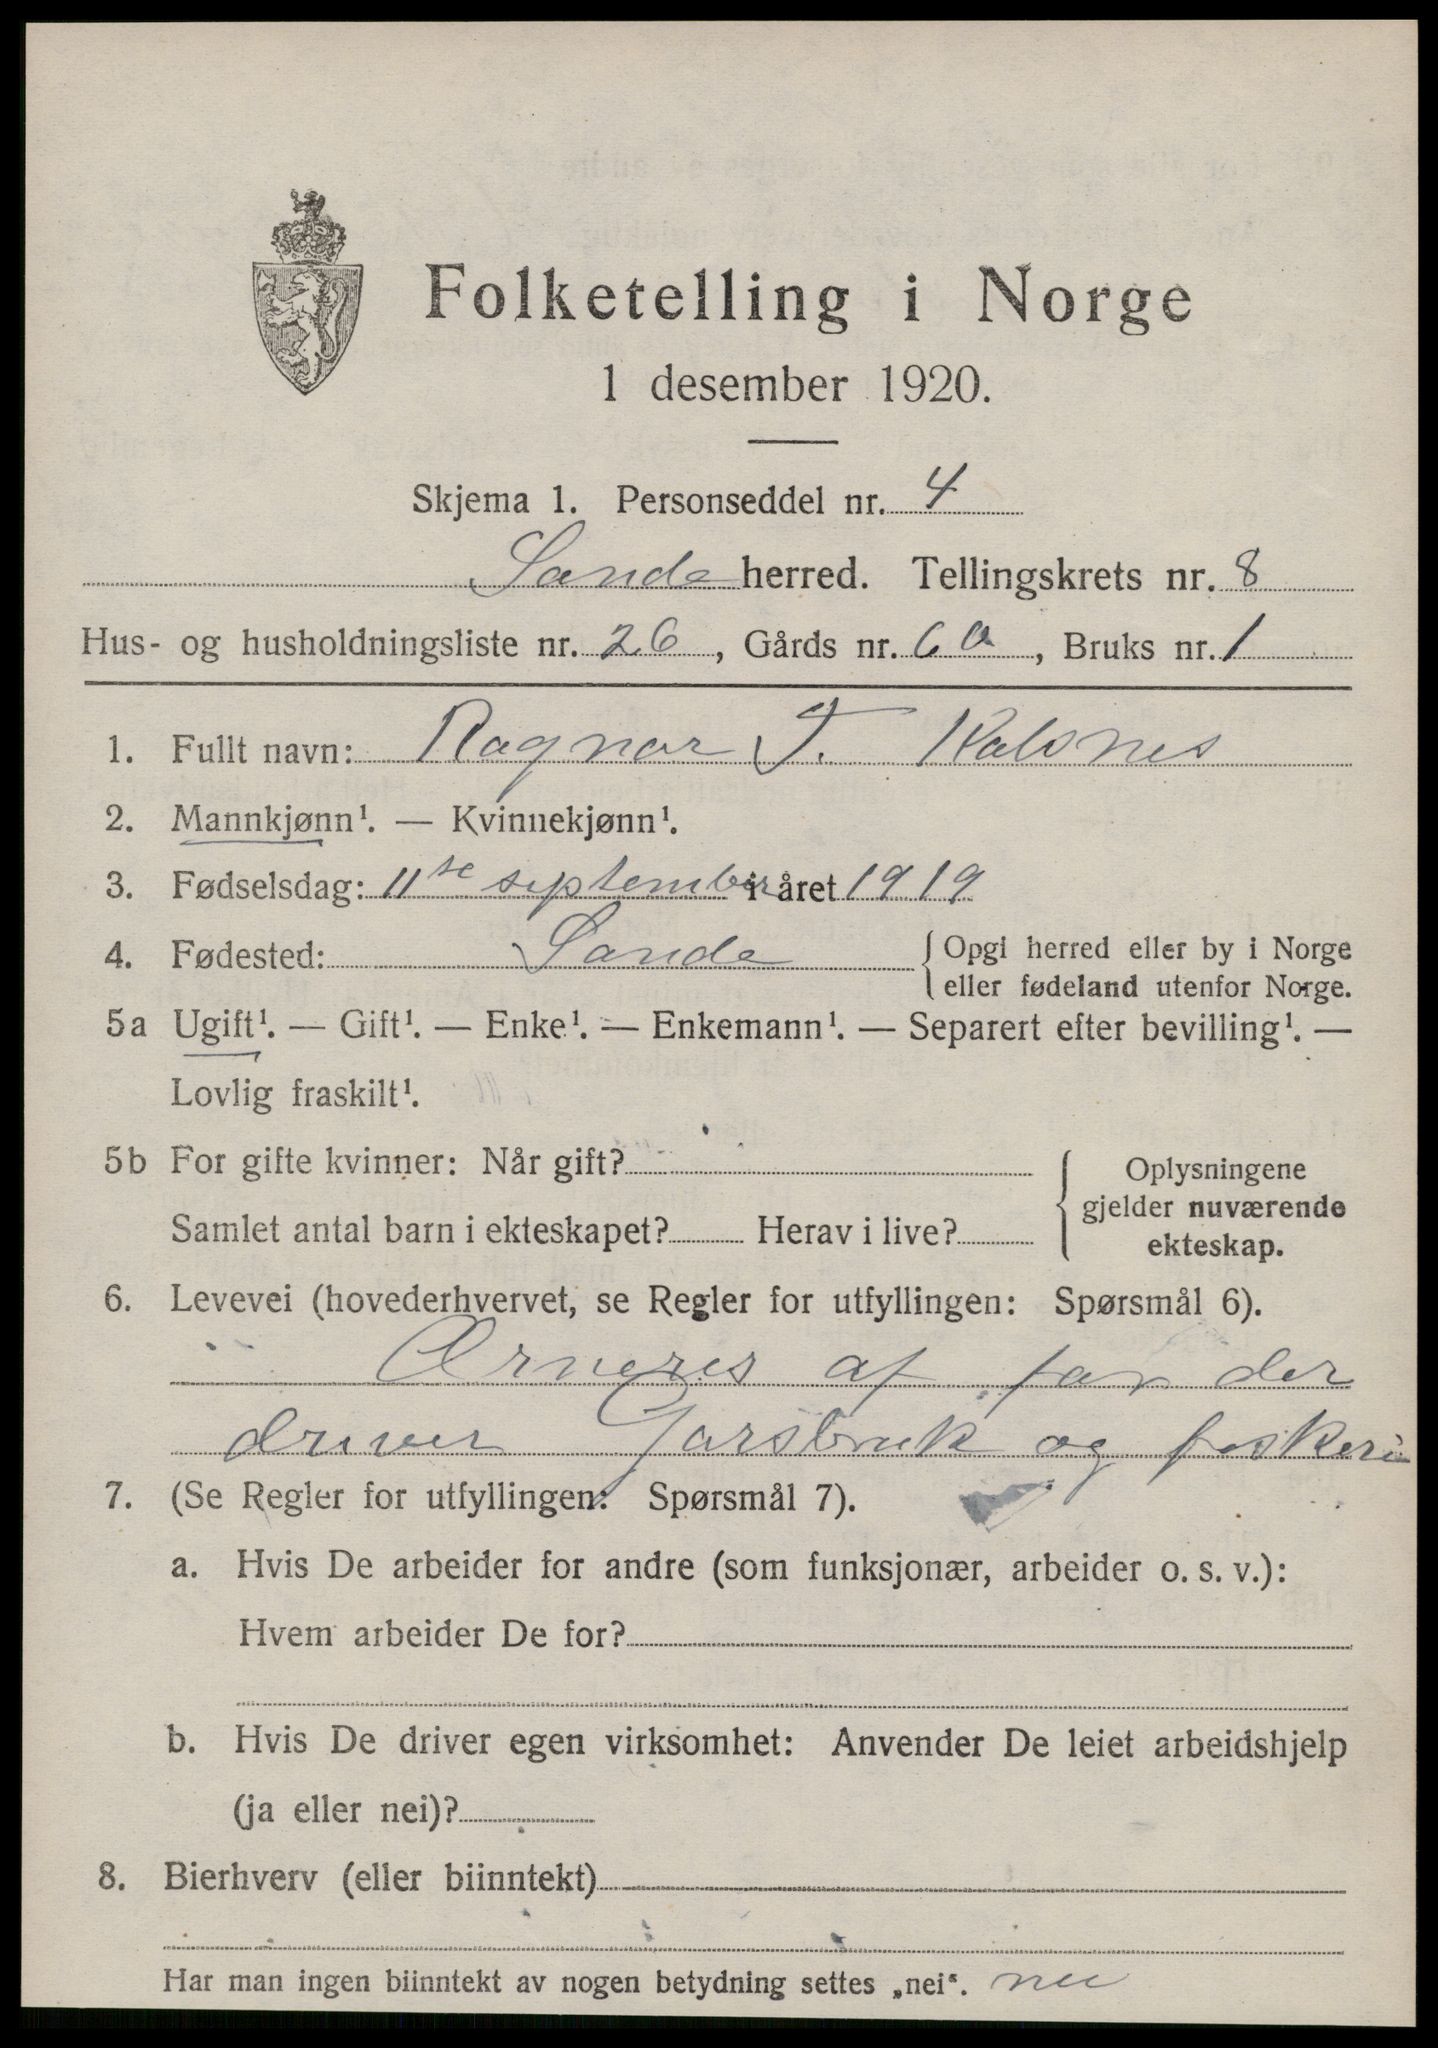 Folketelling i Norge
1 desember 1920.
Skjema 1. Personseddel nr. 4
Sande herred. Tellingskrets nr. 8
Hus- og husholdningsliste nr. 26, Gårds nr. 60, Bruks nr. 1
1. Fullt navn: Ragnar T. Kalsnes
2. Mannkjønn¹. — Kvinnekjønn¹.
3. Fødselsdag: 11te september i året 1919
4. Fødested: Sande { Opgi herred eller by i Norge
eller fødeland utenfor Norge.
5a Ugift¹. — Gift¹. — Enke¹. — Enkemann¹. — Separert efter bevilling¹. —
Lovlig fraskilt¹.
5b For gifte kvinner: Når gift? { Oplysningene
gjelder nuværende
Samlet antal barn i ekteskapet? Herav i live?
ekteskap.
6. Levevei (hovederhvervet, se Regler for utfyllingen: Spørsmål 6).
Ærneres af far der
driver Garsbruk og feskeri
7. (Se Regler for utfyllingen: Spørsmål 7).
a. Hvis De arbeider for andre (som funksjonær, arbeider o. s. v.):
Hvem arbeider De for?
b. Hvis De driver egen virksomhet: Anvender De leiet arbeidshjelp
(ja eller nei)?
8. Bierhverv (eller biinntekt)
Har man ingen biinntekt av nogen betydning settes „nei“. nei